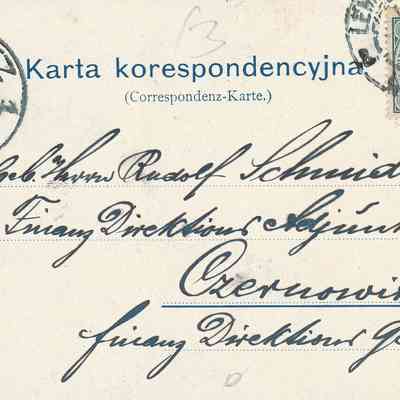 B
LEM
Karta korespondencyjna
(Correspondenz-Karte.)
geb. Herrn Rudolf Schmid
Finanz Direktions Adjunk
Czernowi
finanz Direktions G